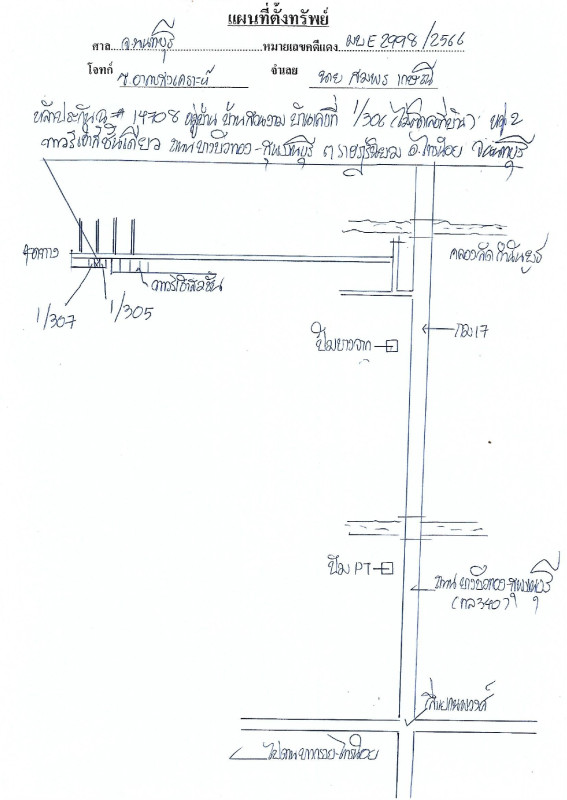 แผนที่ตั้งทรัพย์
ศาล จ.นนทบุรี หมายเลขคดีแดง ผบE2998/2566
โจทก์ ธ.อาคารสงเคราะห์ จำเลย นาย สมพร
หลักประกัน น.ส.4 # 14708 หมู่บ้าน บ้านสวนงาม บ้านเลขที่ 1/306 (ไม่ติดเลขที่บ้าน) หมู่ 2
ทาวน์เฮ้าส์ชั้นเดียว ถนน บางบัวทอง-สุพรรณบุรี ต.ราษฎร์นิยม อ.ไทรน้อย จ.นนทบุรี
สุดทาง
คลองลัด
ทาวน์เฮ้าส์สองชั้น
1/307
1/305
กม17
ปั๊มบางจาก
ปั๊ม PT
ถนน บางบัวทอง-สุพรรณบุรี
(ทล340)
ไทรน้อย